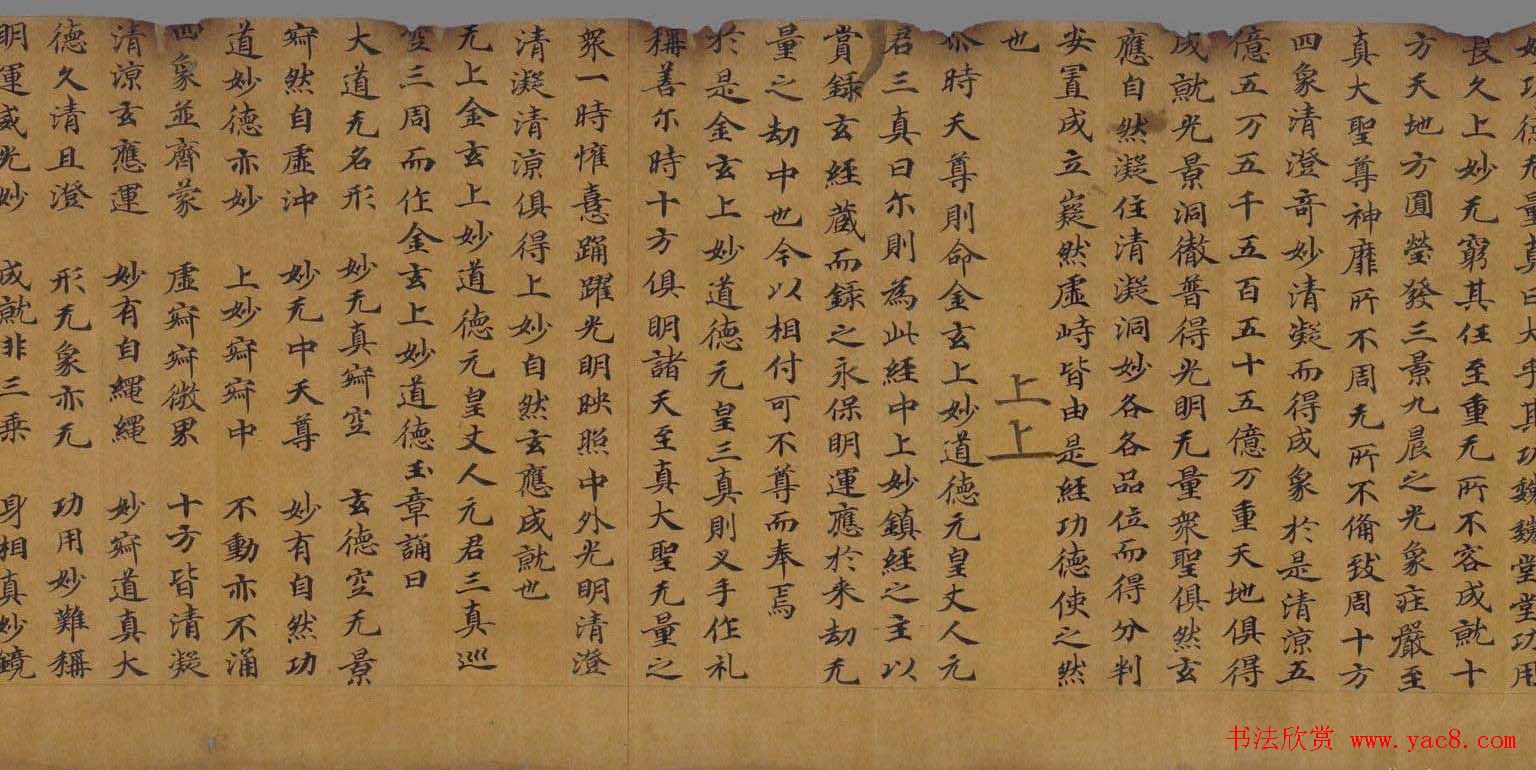 妙功德无量真曰大乎其功巍巍堂堂功用
長久上妙无窮其任至重无所不容成就十
方天地方圓瑩發三景九晨之光象莊嚴至
真大聖尊神靡所不周无所不備致周十方
四象清澄奇妙清凝而得成象於是清涼五
億五万五千五百五十五億万重天地俱得
成就光景洞徹普得光明无量衆聖俱然玄
應自然凝住清凝洞妙各各品位而得分判
安置成立嶷然虛峙皆由是經功德使之然
也
上上
尒時天尊則命金玄上妙道德元皇丈人元
君三真曰尒則為此經中上妙鎮經之主以
賞錄玄經藏而錄之永保明運應於来劫无
量之劫中也今以相付可不尊而奉焉
於是金玄上妙道德元皇三真則叉手作礼
稱善尒時十方俱明諸天至真大聖无量之
衆一時懽憙踊躍光明映照中外光明清澄
清凝清涼俱得上妙自然玄應成就也
无上金玄上妙道德元皇丈人元君三真巡
空三周而作金玄上妙道德玉章誦曰
大道无名形 妙无真寂空 玄德空无景
寂然自虛沖 妙无中天尊 妙有自然功
道妙德亦妙 上妙寂寂中 不動亦不涌
四象並齊蒙 虛寂寂微果 十方皆清凝
清涼玄應運 妙有自繩繩 妙寂道真大
德久清且澄 形无象亦无 功用妙難稱
明運威光妙 成就非三乘 身相真妙鏡
书法欣赏 www.yac8.com